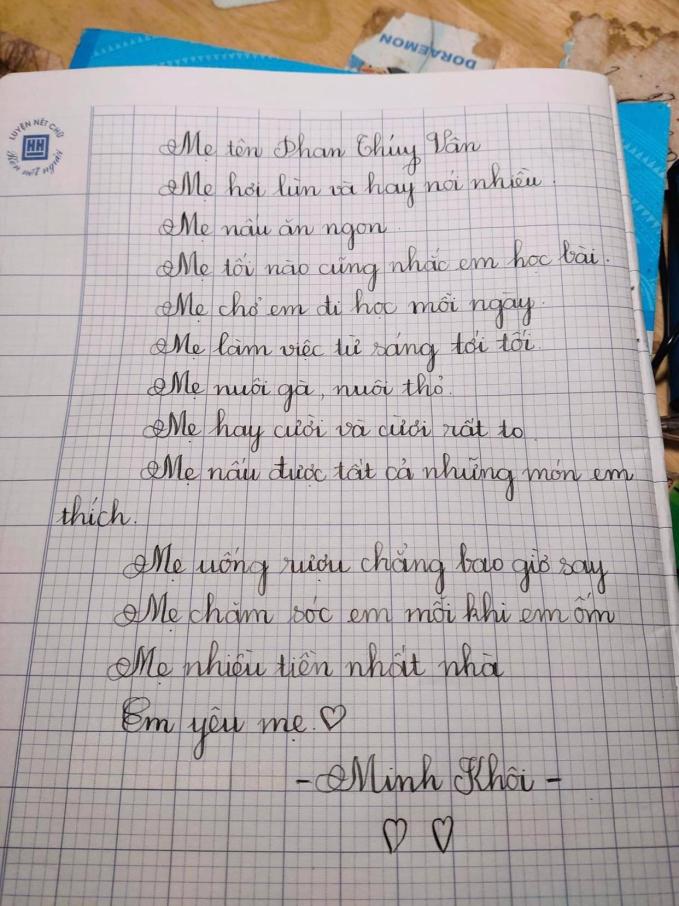 DORAEMON
LUYỆN NÉT CHỮ
HH
Rèn nết người
Mẹ tên Phan Thúy Vân
Mẹ hơi lùn và hay nói nhiều.
Mẹ nấu ăn ngon
Mẹ tối nào cũng nhắc em học bài.
Mẹ chở em đi học mỗi ngày.
Mẹ làm việc từ sáng tới tối.
Mẹ nuôi gà, nuôi thỏ.
Mẹ hay cười và cười rất to
Mẹ nấu được tất cả những món em
thích.
Mẹ uống rượu chẳng bao giờ say
Mẹ chăm sóc em mỗi khi em ốm
Mẹ nhiều tiền nhất nhà
Em yêu mẹ.♡
- Minh Khôi -
♡ ♡